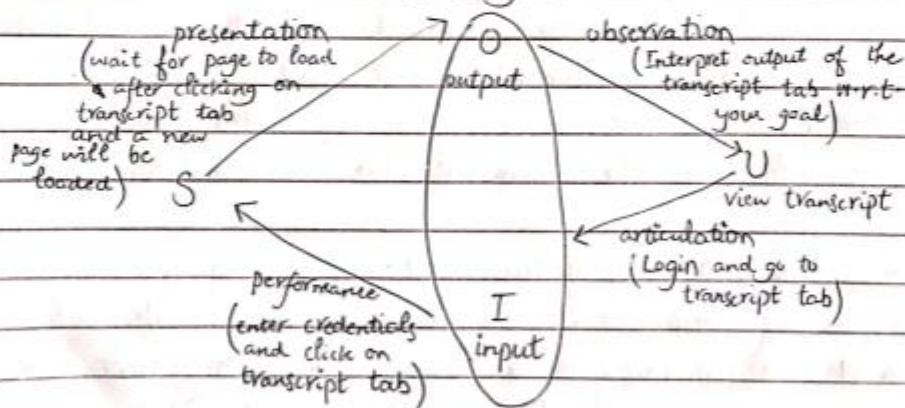 presentation
(wait for page to load
after clicking on
transcript tab
and a new
page will be
loaded)
O
output
observation
(Interpret output of the
transcript tab w.r.t
your goal)
S
U
view transcript
articulation
(Login and go to
transcript tab)
performance
(enter credentials
and click on
transcript tab)
I
input